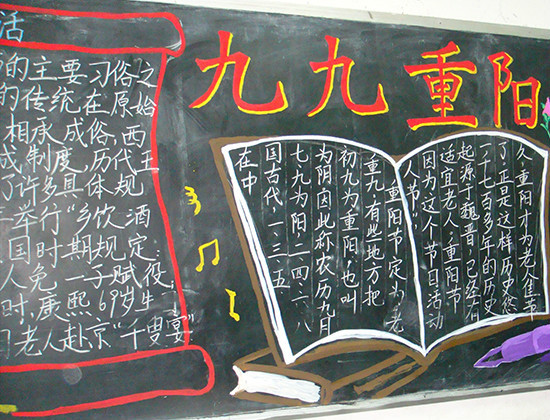 九九重阳
活
的主要习俗之
的传统在原始
相承成俗,西
成制度,历代王
了许多具体规
举行"乡饮酒
国时期规定:
人免一子赋役,
时,康熙69岁生
老人赴京"千叟宴"
在中
国古代,一三五
七九为阳二四六八
为阴,因此称农历九月
初九为重阳,也叫
重九,有些地方把
重阳节定为老
人节"
因为这个节日活动
适宜老,重阳节
起源于魏晋,已经有
一千七百多年的历史
了正是这样历史悠
久,重阳才为老人佳节